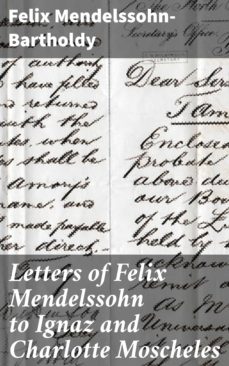 Felix Mendelssohn-
Bartholdy
Secretary's Office,
Dear Sirs
have filled
I am
and returned
with the
Enclosed
probate
when
above du
shall be
our Boo
of the L
Amory's
held by
name, and
made payable
remit
her direct-
as M
Universi
if it
Letters of Felix
Mendelssohn
to Ignaz and
Charlotte Moscheles